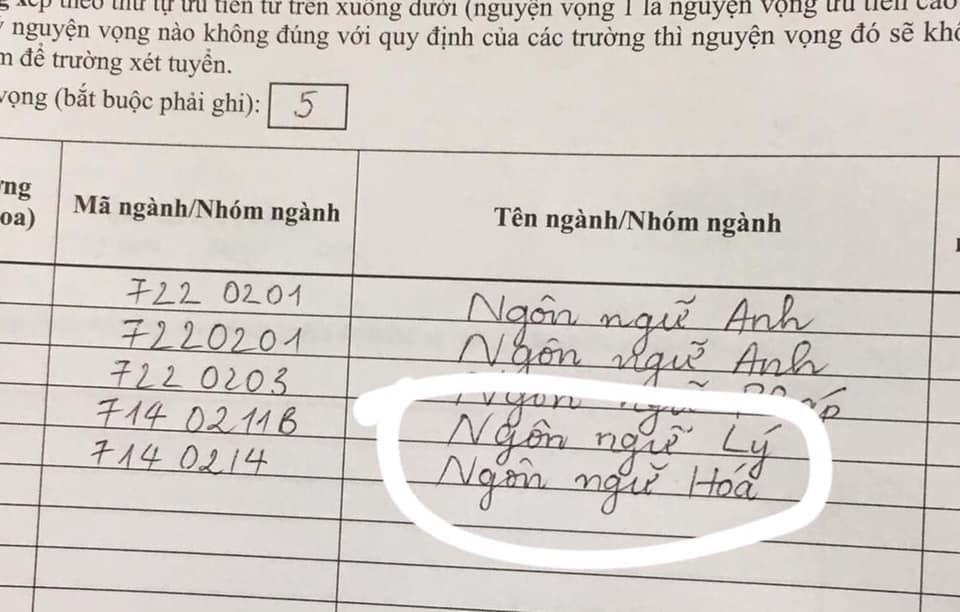 xếp theo thứ tự ưu tiên từ trên xuống dưới (nguyện vọng 1 là nguyện vọng ưu tiên cao
nguyện vọng nào không đúng với quy định của các trường thì nguyện vọng đó sẽ
để trường xét tuyển.
vọng (bắt buộc phải ghi): 5
Mã ngành/Nhóm ngành Tên ngành/Nhóm ngành
oa)
722 0201 Ngôn ngữ Anh
7220201 Ngôn ngữ Anh
722 0203 Ngôn ngữ Pháp
714 0211B Ngôn ngữ Lý
714 0214 Ngôn ngữ Hoá